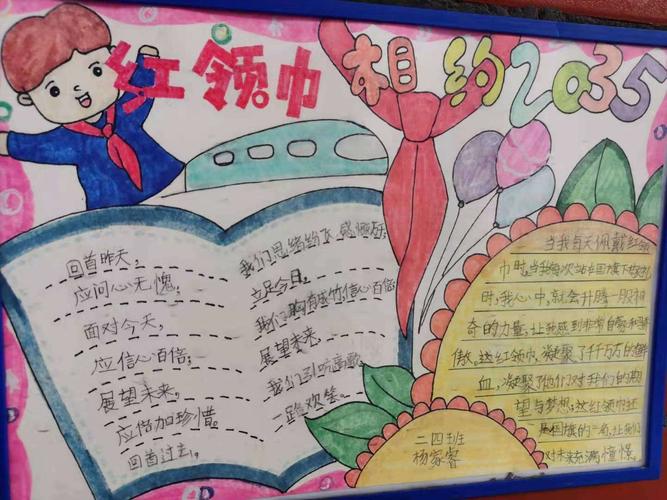 红领巾
相约2035
回首昨天,
应问心无愧,
面对今天,
应信心百倍,
展望未来,
应倍加珍惜。
回首过去,
我们思绪纷飞,感慨万
立足今日,
我们胸有成竹,信心百倍
展望未来,
我们引吭高歌
一路欢笑。
当我每天佩戴红领
巾时,当我每次站在国旗下敬礼
时,我心中,就会升腾一股神
奇的力量,让我感到非常自豪和骄
傲,这红领巾,凝聚了千万万的鲜
血,凝聚了他们对我们的期
望与梦想,这红领巾还
是国旗的一角,让我们
对未来充满憧憬。
二四班
杨家睿